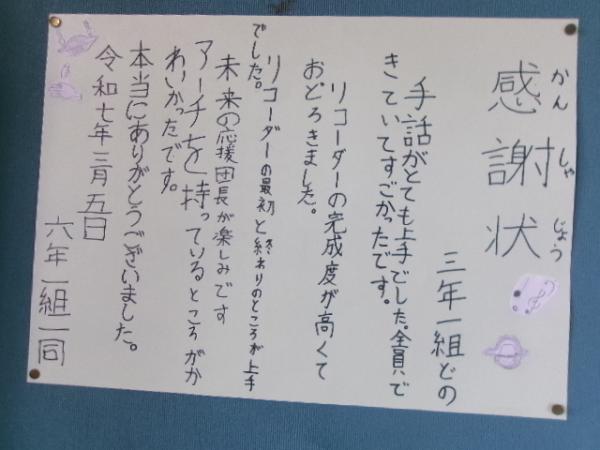 感謝状
かんしゃじょう
三年一組どの
手話がとても上手でした。全員で
きていてすごかったです。
リコーダーの完成度が高くて
おどろきました。
リコーダーの最初と終わりのところが上手
でした。
未来の応援団長が楽しみです
アーチを持っているところがか
わいかったです。
本当にありがとうございました。
令和七年三月五日
六年一組一同